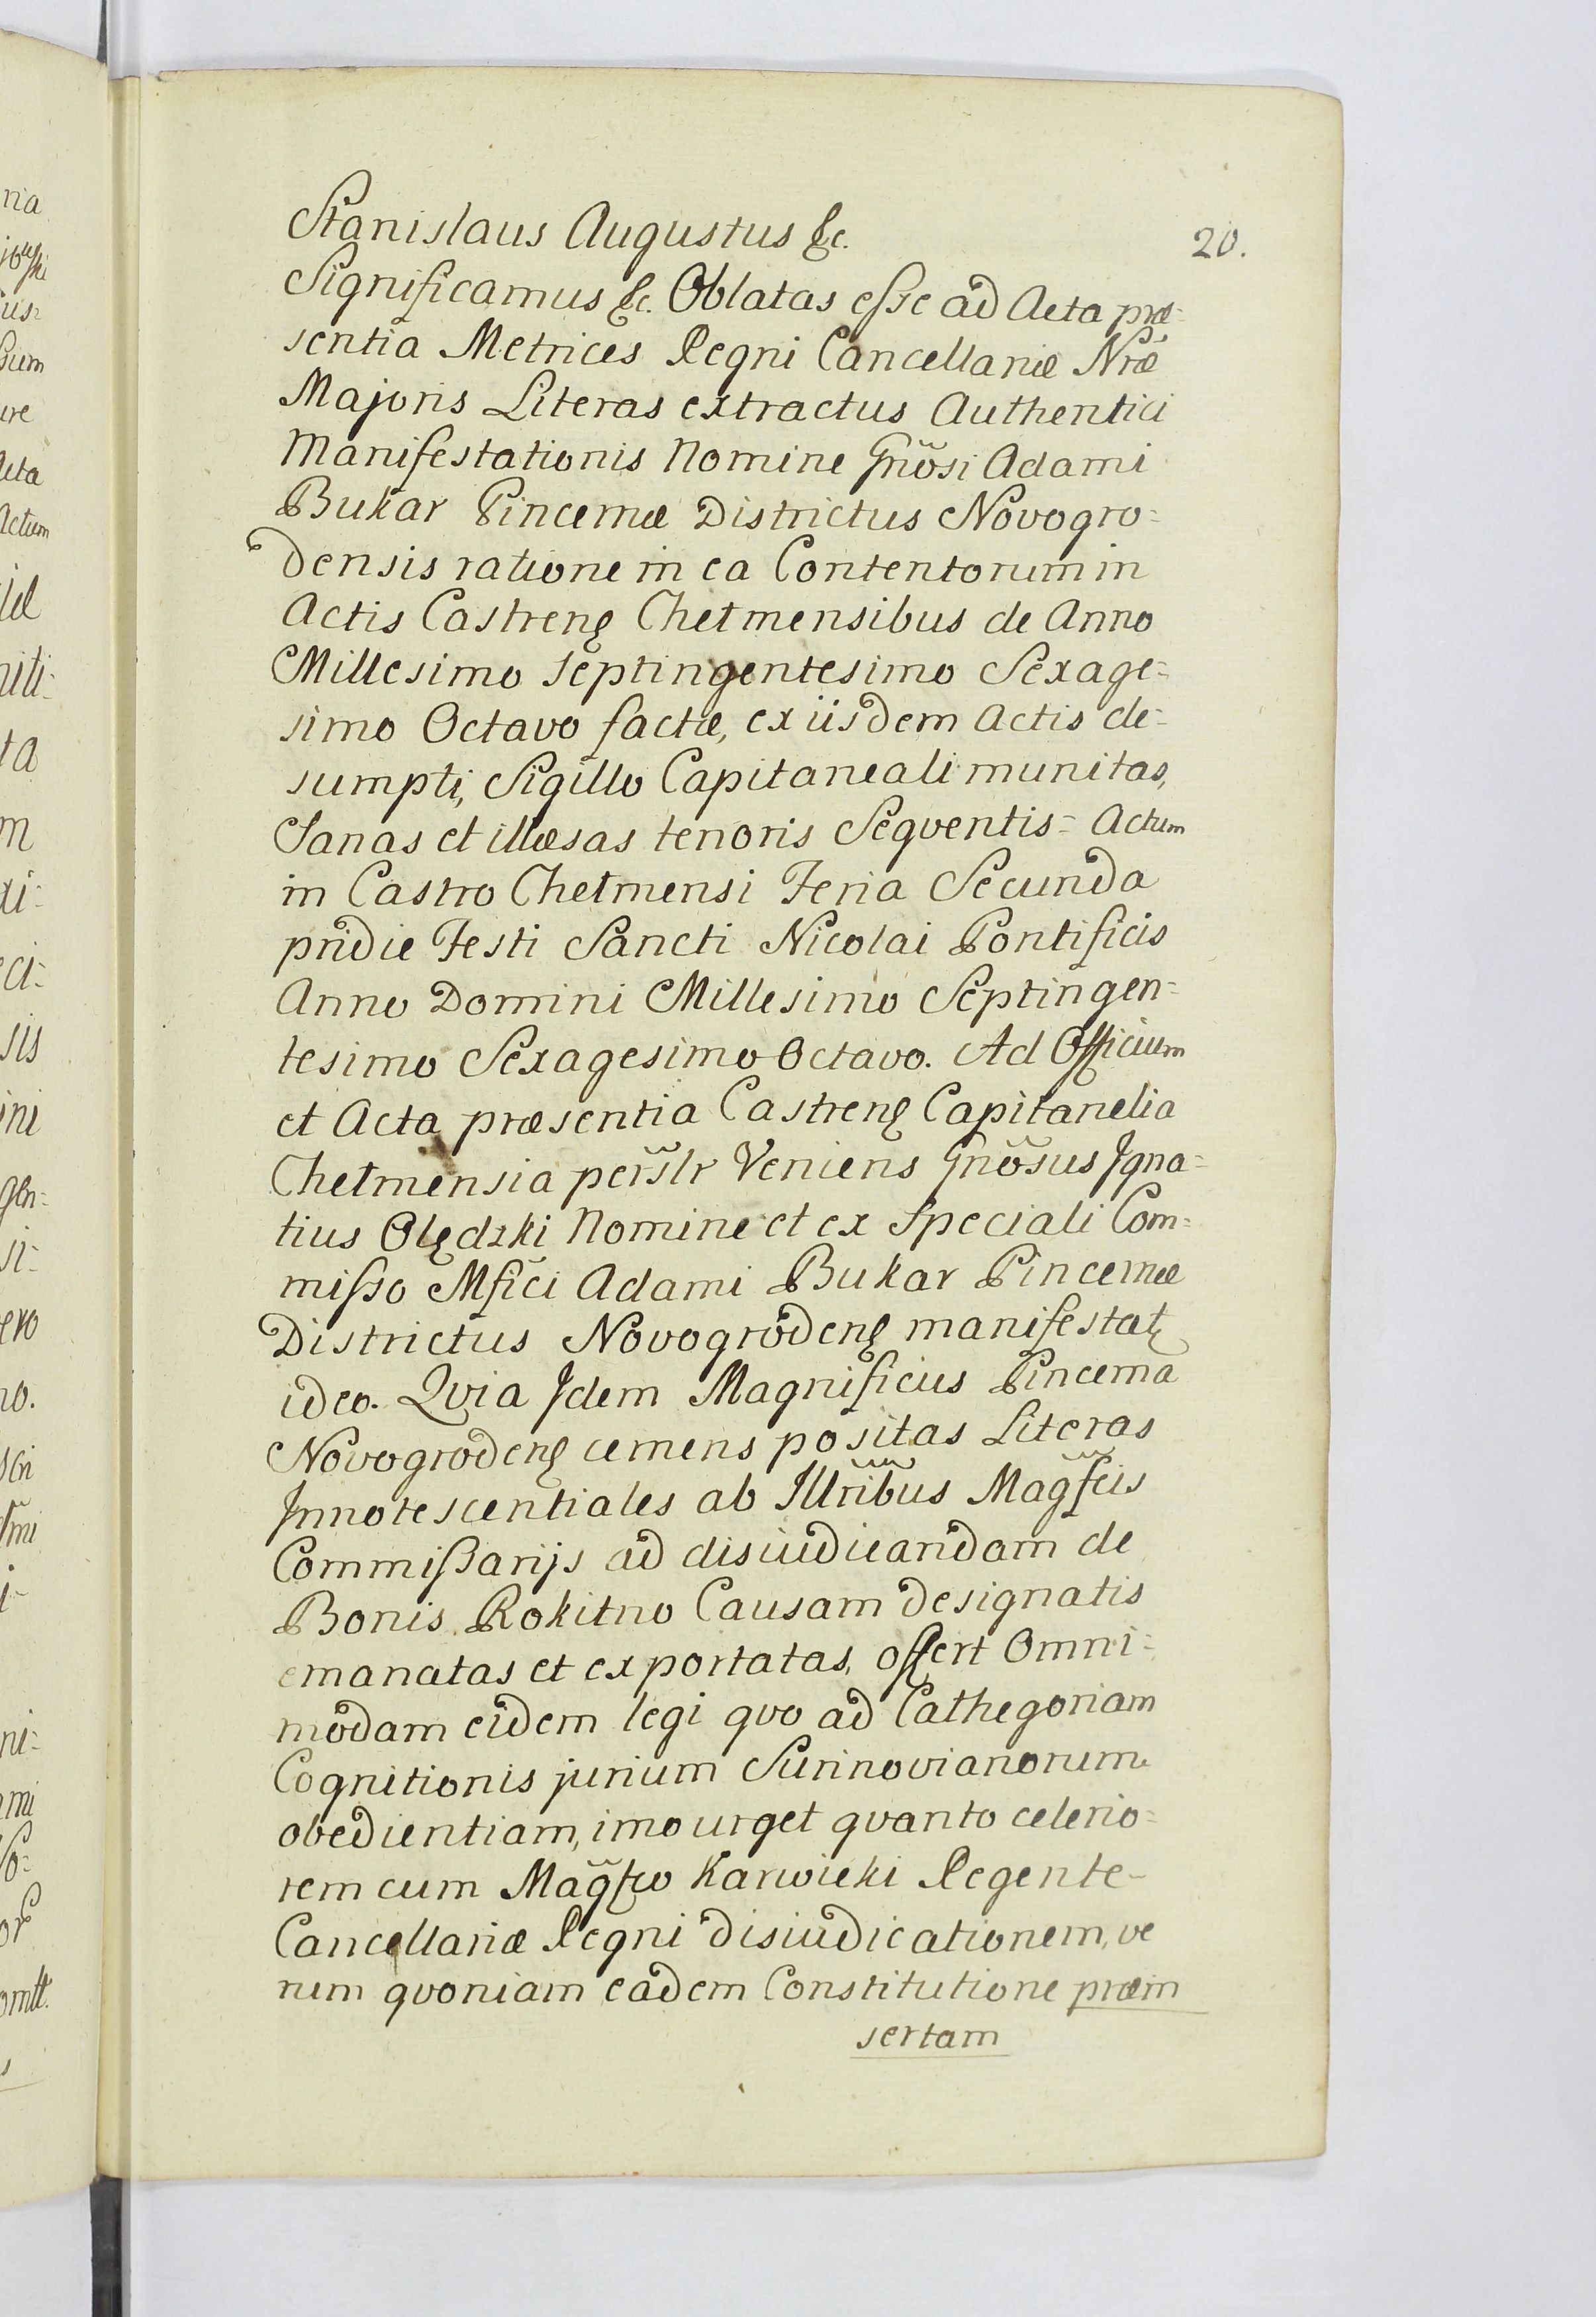 Stanislaus Augustus &c.
20.
Significamus &c. Oblatas esse ad Acta præ=
sentia Metrices Regni Cancellariæ Nræ
Majoris Literas extractus Authentici
Manifestationis Nomine Gnõsi Adami
Bukar Pincernæ Districtus Novogro=
densis ratione in ea Contentorum in
Actis Castreng Chełmensibus de Anno
Millesimo septingentesimo Sexage=
simo Octavo factæ, ex iisdem Actis de=
sumpti, Sigillo Capitaneali munitas,
Sanas et illæsas tenoris Seqventis= Actum
in Castro Chełmensi Feria Secunda
pridie Festi Sancti Nicolai Pontificis
Anno Domini Millesimo Septingen=
tesimo Sexagesimo Octavo. Ad Officium
et Acta præsentia Castreng Capitanelia
Chełmensia perslr Veniens Gnõsus Igna=
tius Olędzki Nomine et ex Speciali Com=
misso Mfici Adami Bukar Pincernæ
Districtus Novogrodeng manifestat
ideo. Qvia Idem Magnificus Pincerna
Novogrodeng cernens positas Literas
Innotescentiales ab Illribus Magfcis
Commissarijs ad disiudicandam de
Bonis Rokitno Causam designatis
emanatas et exportatas, offert Omni=
modam eidem legi qvo ad Cathegoriam
Cognitionis jurium Surinovianorum
obedientiam, imo urget qvanto celerio=
rem cum Magfco Karwicki Regente
Cancellariæ Regni disiudicationem, ve
rum qvoniam eadem Constitutione præin
sertam